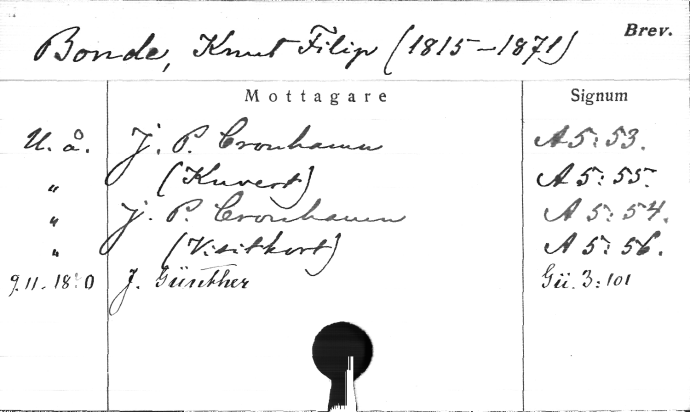 Brev.
Bonde, Knut Filip (1815–1871)
Mottagare Signum
U. å. J. P. Cronhamn A 5:53.
" (Kuvert) A 5:55.
" J. P. Cronhamn A 5:54.
" (Visitkort) A 5:56.
9.11. J. Günther Gü. 3:101